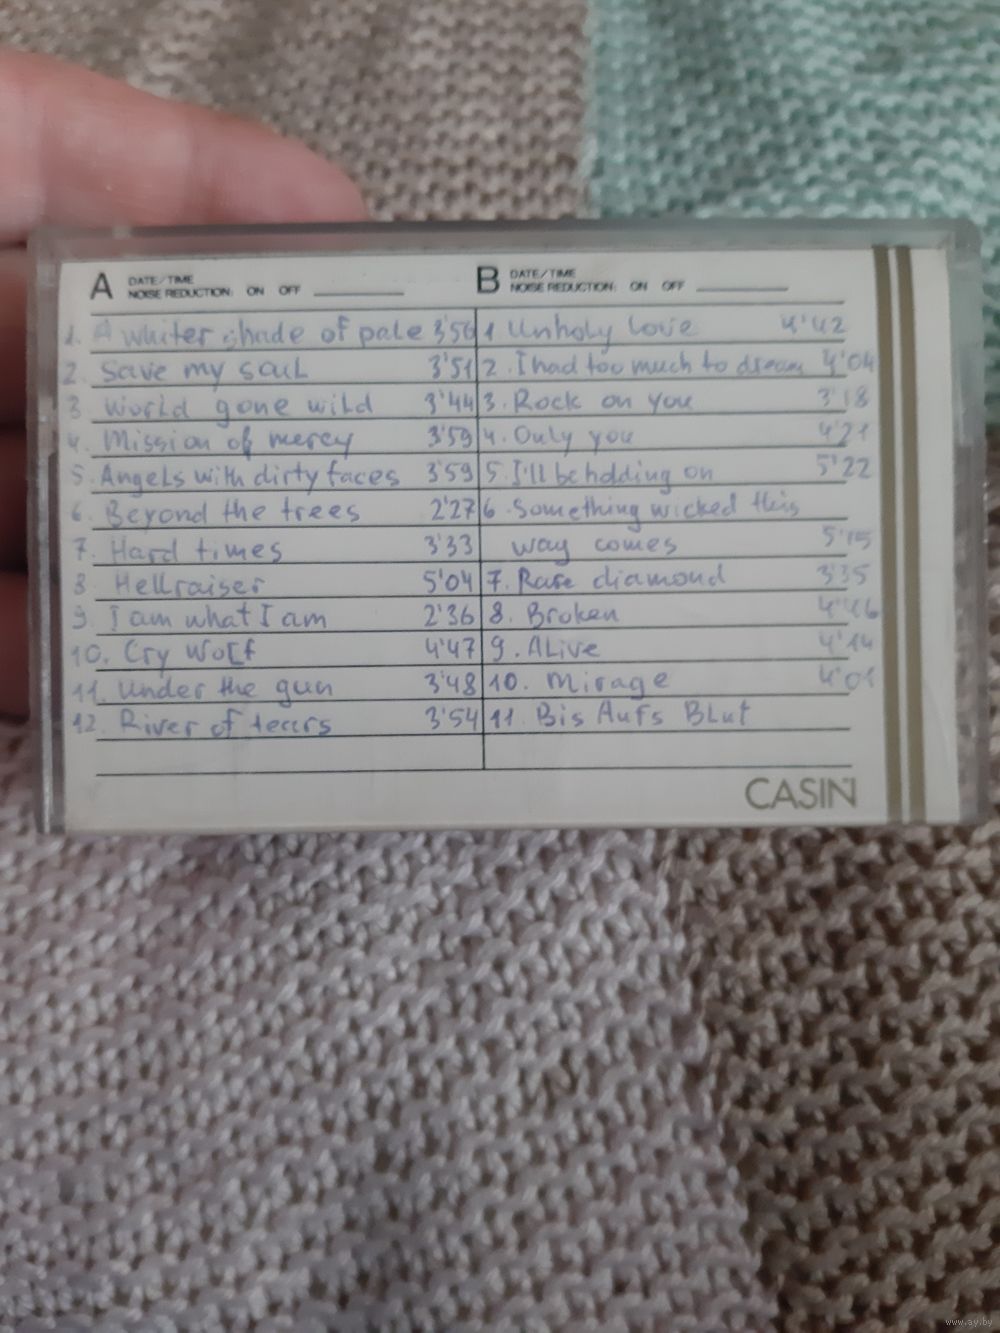 A DATE/TIME
NOISE REDUCTION: ON OFF
1. A whiter shade of pale 3'56
2. Save my soul 3'51
3 World gone wild 3'44
4. Mission of mercy 3'59
5. Angels with dirty faces 3'59
6. Beyond the trees 2'27
7. Hard times 3'33
8 Hellraiser 5'04
9. I am what I am 2'36
10. Cry Wolf 4'47
11. Under the gun 3'48
12. River of tears 3'54
B DATE/TIME
NOISE REDUCTION: ON OFF
1 Unholy love 4'42
2. I had too much to dream 4'04
3. Rock on you 3'18
4. Only you 4'21
5. I'll be holding on 5'22
6. Something wicked this
way comes 5'15
7. Rare diamond 3'35
8. Broken 4'46
9. Alive 4'14
10. Mirage 4'01
11. Bis Aufs Blut
CASIN
www.ay.by